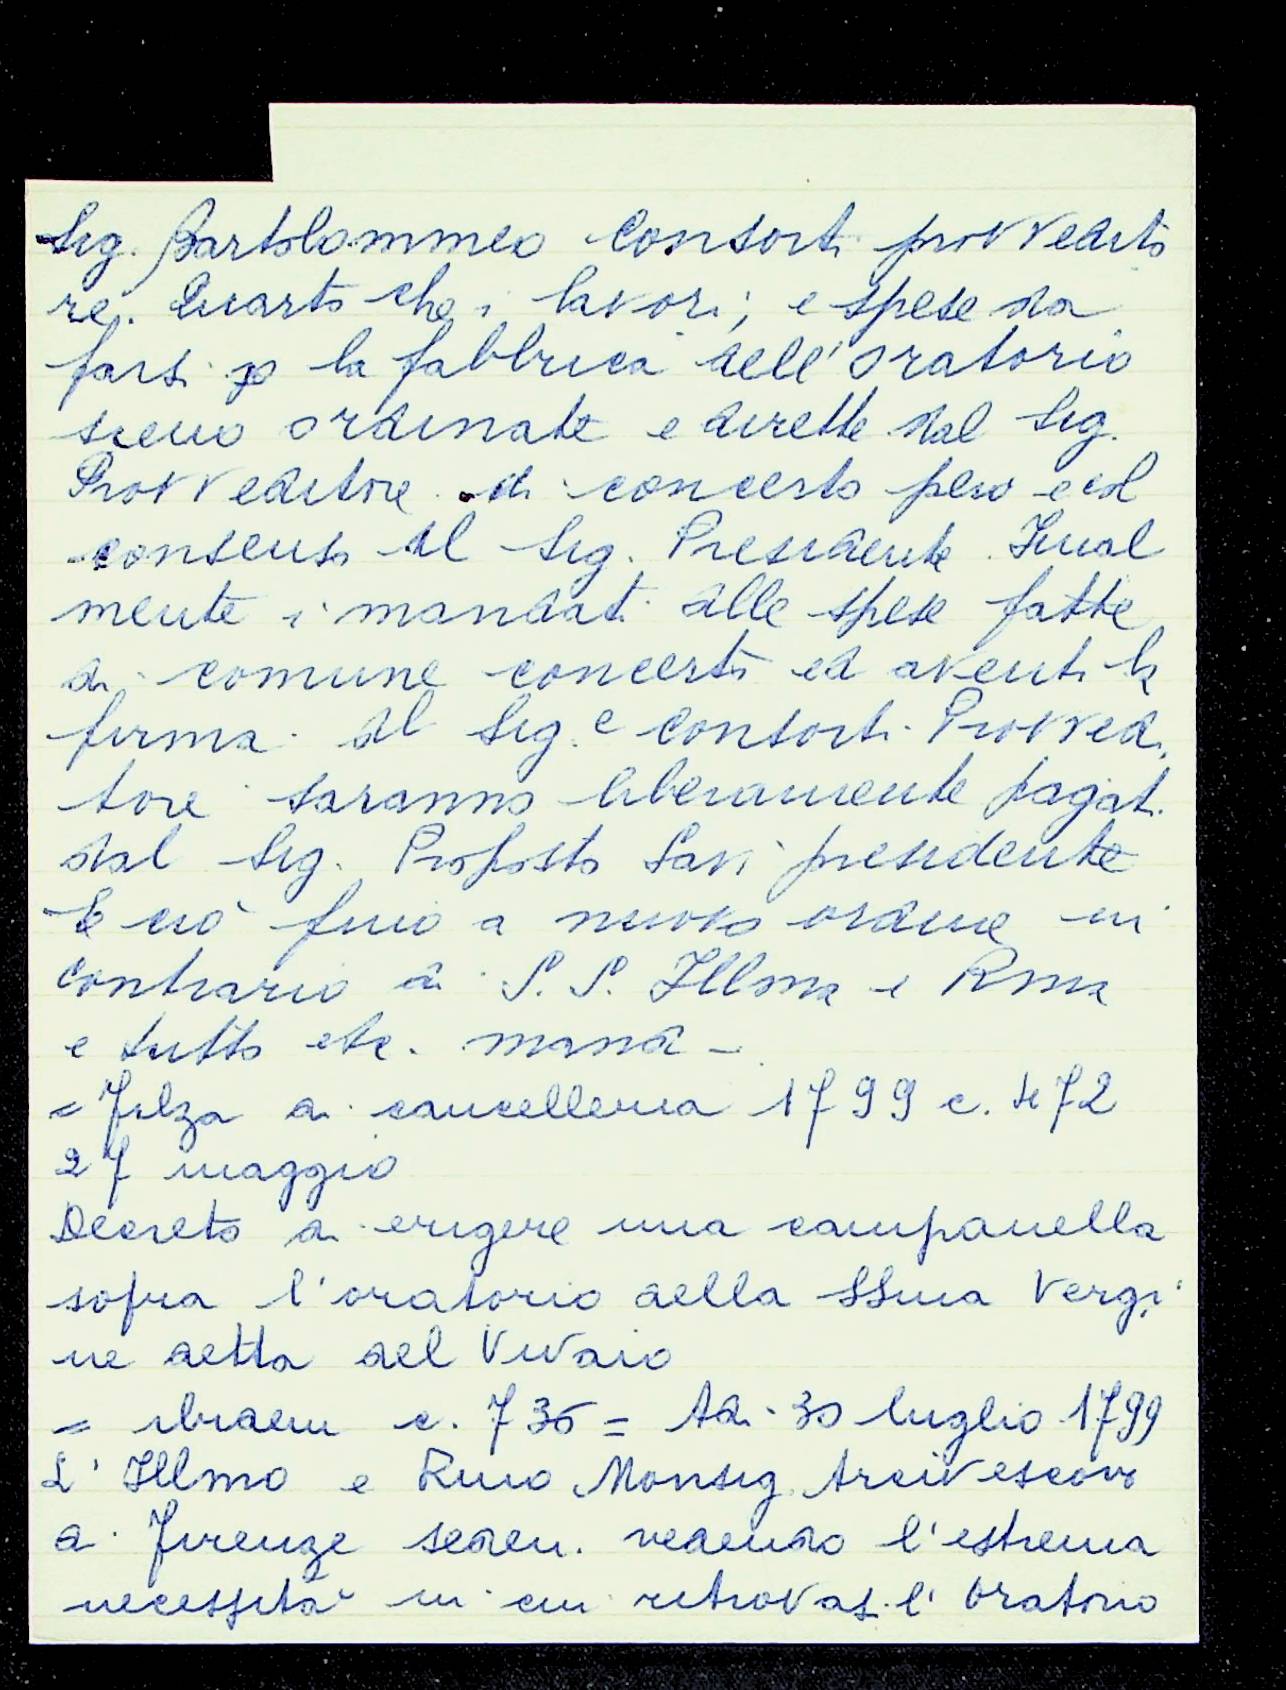 Sig. Bartolommeo Consorti provvedito
re. Quarto che i lavori, e spese da
farsi p la fabbrica dell'oratorio
sieno ordinate e dirette dal Sig.
Provveditore di concerto pero e col
consenso del Sig. Presidente. Final
mente i mandati delle spese fatte
di comune concerto ed aventi la
firma del Sig.e Consorti Provvedi,
tore saranno liberamente pagati
dal Sig. Proposto Savi presidente
E ciò fino a nuovo ordine in
contrario di S. S. Illma e Rma
e tutto etc. mand –
= Filza di cancelleria 1799 c. 472
27 maggio
Decreto di erigere una campanella
sopra l'oratorio della SSma Vergi
ne detta del Vivaio
= ibidem c. 736 = Adi 30 luglio 1799
L'Illmo e Rmo Monsig. Arcivescovo
di Firenze seden. vedendo l'estrema
necessità in cui ritrovasi l'oratorio